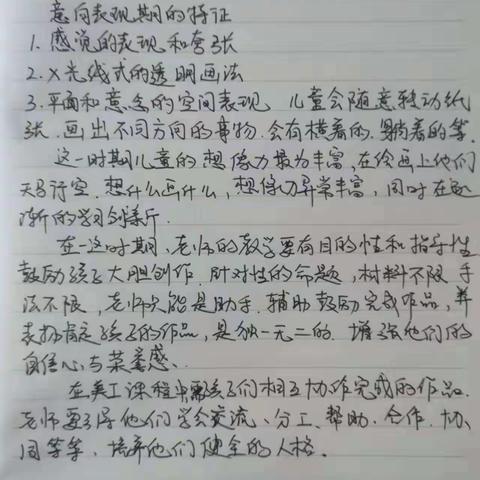 意向表现期的特征
1. 感觉的表现和夸张
2. X光线式的透明画法
3. 平面和意念的空间表现 儿童会随意转动纸
张. 画出不同方向的事物. 会有横着的. 躺着的等.
这一时期儿童的想像力最为丰富, 在绘画上他们
天马行空. 想什么画什么, 想像力异常丰富, 同时在
渐的学习创新.
在一这时期, 老师的教学要有目的性和指导性
鼓励孩子大胆创作. 针对性的命题, 材料不限 手
法不限, 老师只能是助手. 辅助鼓励完成作品, 并
表扬肯定孩子的作品, 是独一无二的. 增强他们的
自信心与荣誉感.
在美工课程中需孩子们相互协作完成的作品.
老师要引导他们学会交流、分工、帮助、合作. 协
同等等, 培养他们健全的人格.